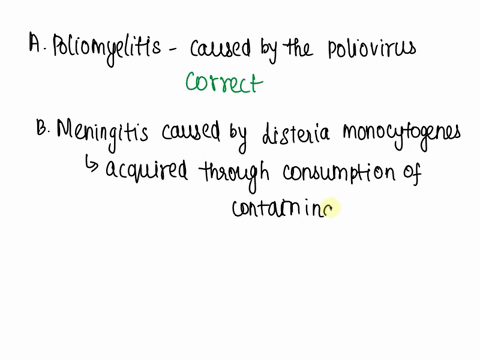 A. Poliomyelitis - caused by the poliovirus
correct
B. Meningitis caused by Listeria monocytogenes
↳ acquired through consumption of
contaminc